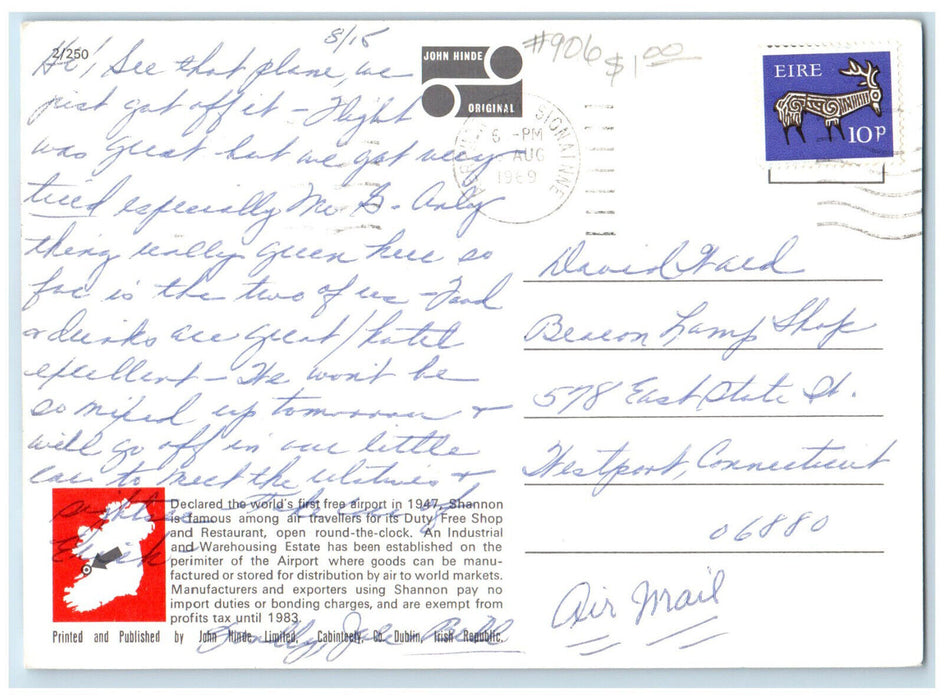 2/250
8/15
JOHN HINDE
ORIGINAL
#906
$1.00
EIRE
10p
SIONAINNE
6 -PM
AUG
1969
Hi! See that plane, we
just got off it - Flight
was great but we got very
tired especially Mr. G. Only
thing really green here so
far is the two of us - Food
& drinks are great / hotel
excellent - We won't be
so mixed up tomorrow &
will go off in our little
car to meet the relatives &
David Ward
Beacon Lamp Shop
578 East State St.
Westport, Connecticut
06880
Air Mail
Declared the world's first free airport in 1947, Shannon
is famous among air travellers for its Duty Free Shop
and Restaurant, open round-the-clock. An Industrial
and Warehousing Estate has been established on the
perimiter of the Airport where goods can be manu-
factured or stored for distribution by air to world markets.
Manufacturers and exporters using Shannon pay no
import duties or bonding charges, and are exempt from
profits tax until 1983.
Printed and Published by John Hinde Limited, Cabinteely, Co. Dublin, Irish Republic.